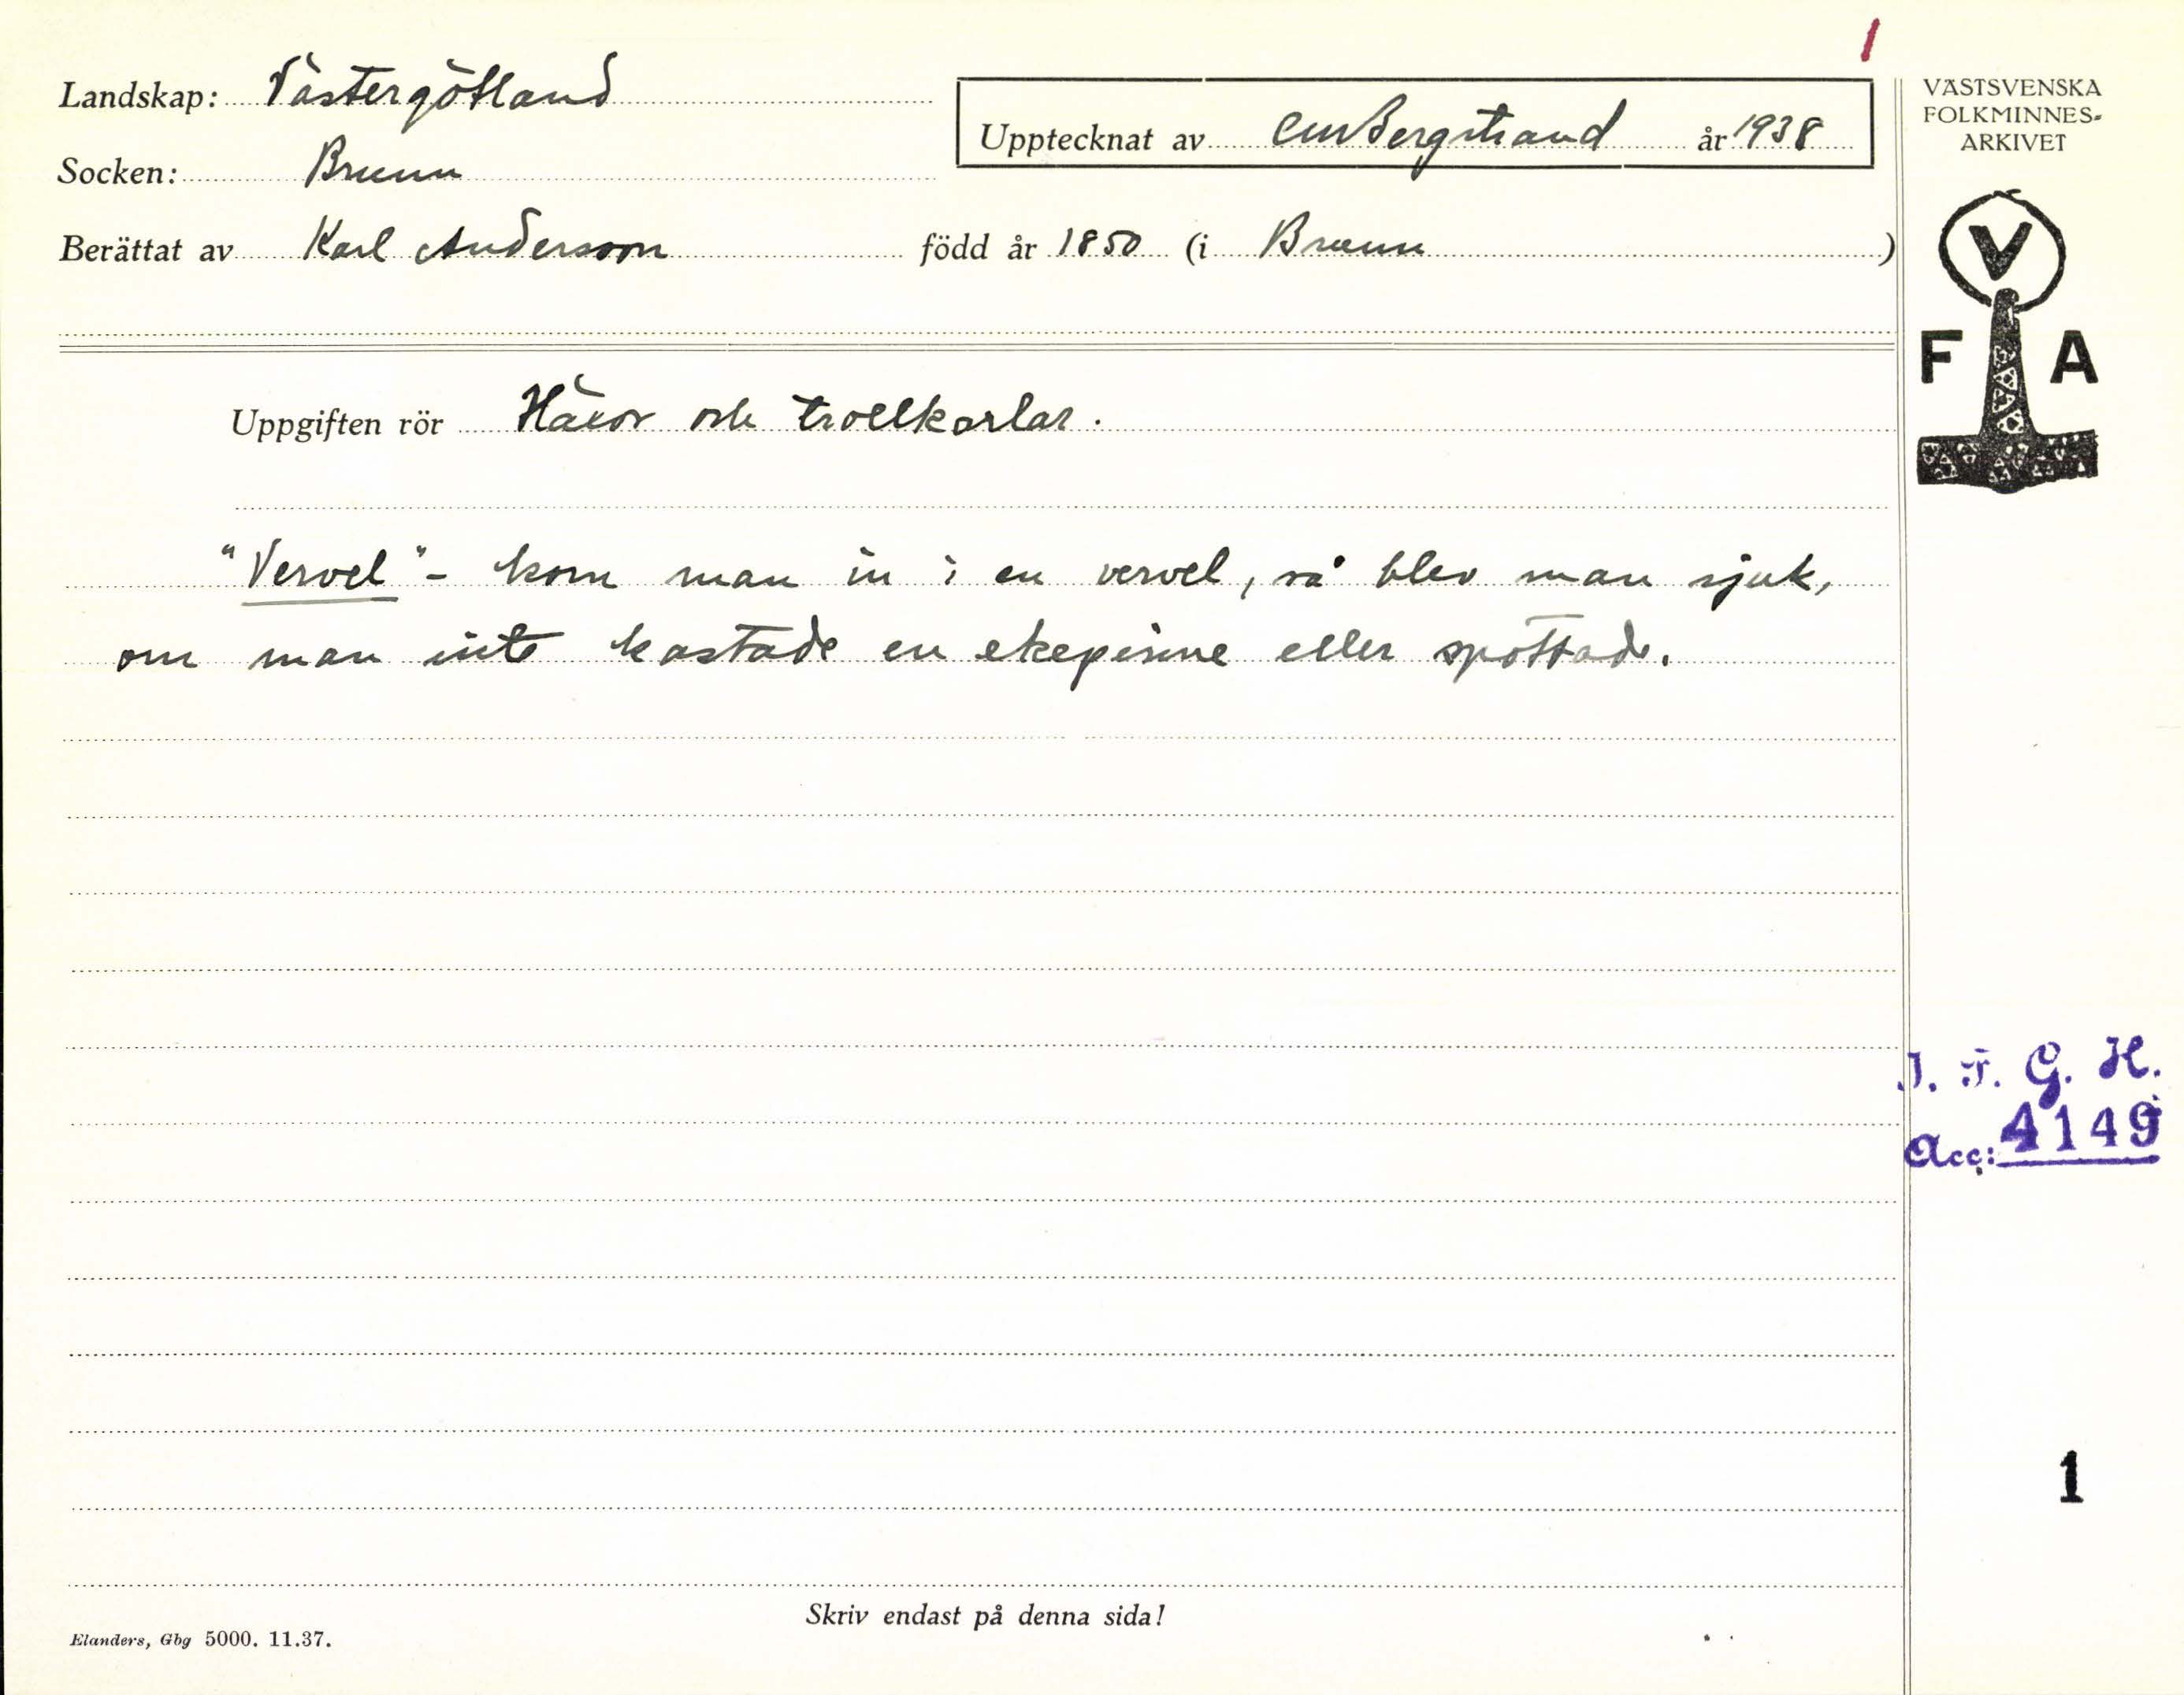 1
Landskap: Västergötland
Upptecknat av CM Bergstrand år 1938
Socken: Brunn
Berättat av Karl Andersson född år 1850 (i Brunn)
VÄSTSVENSKA
FOLKMINNES-
ARKIVET
V
F A
Uppgiften rör Häxor och trollkarlar.
"Vervel" - kom man in i en vervel, så blev man sjuk,
om man inte kastade en ekepinne eller spottade.
I. F. G. H.
Acc: 4149
1
Skriv endast på denna sida!
Elanders, Gbg 5000. 11.37.